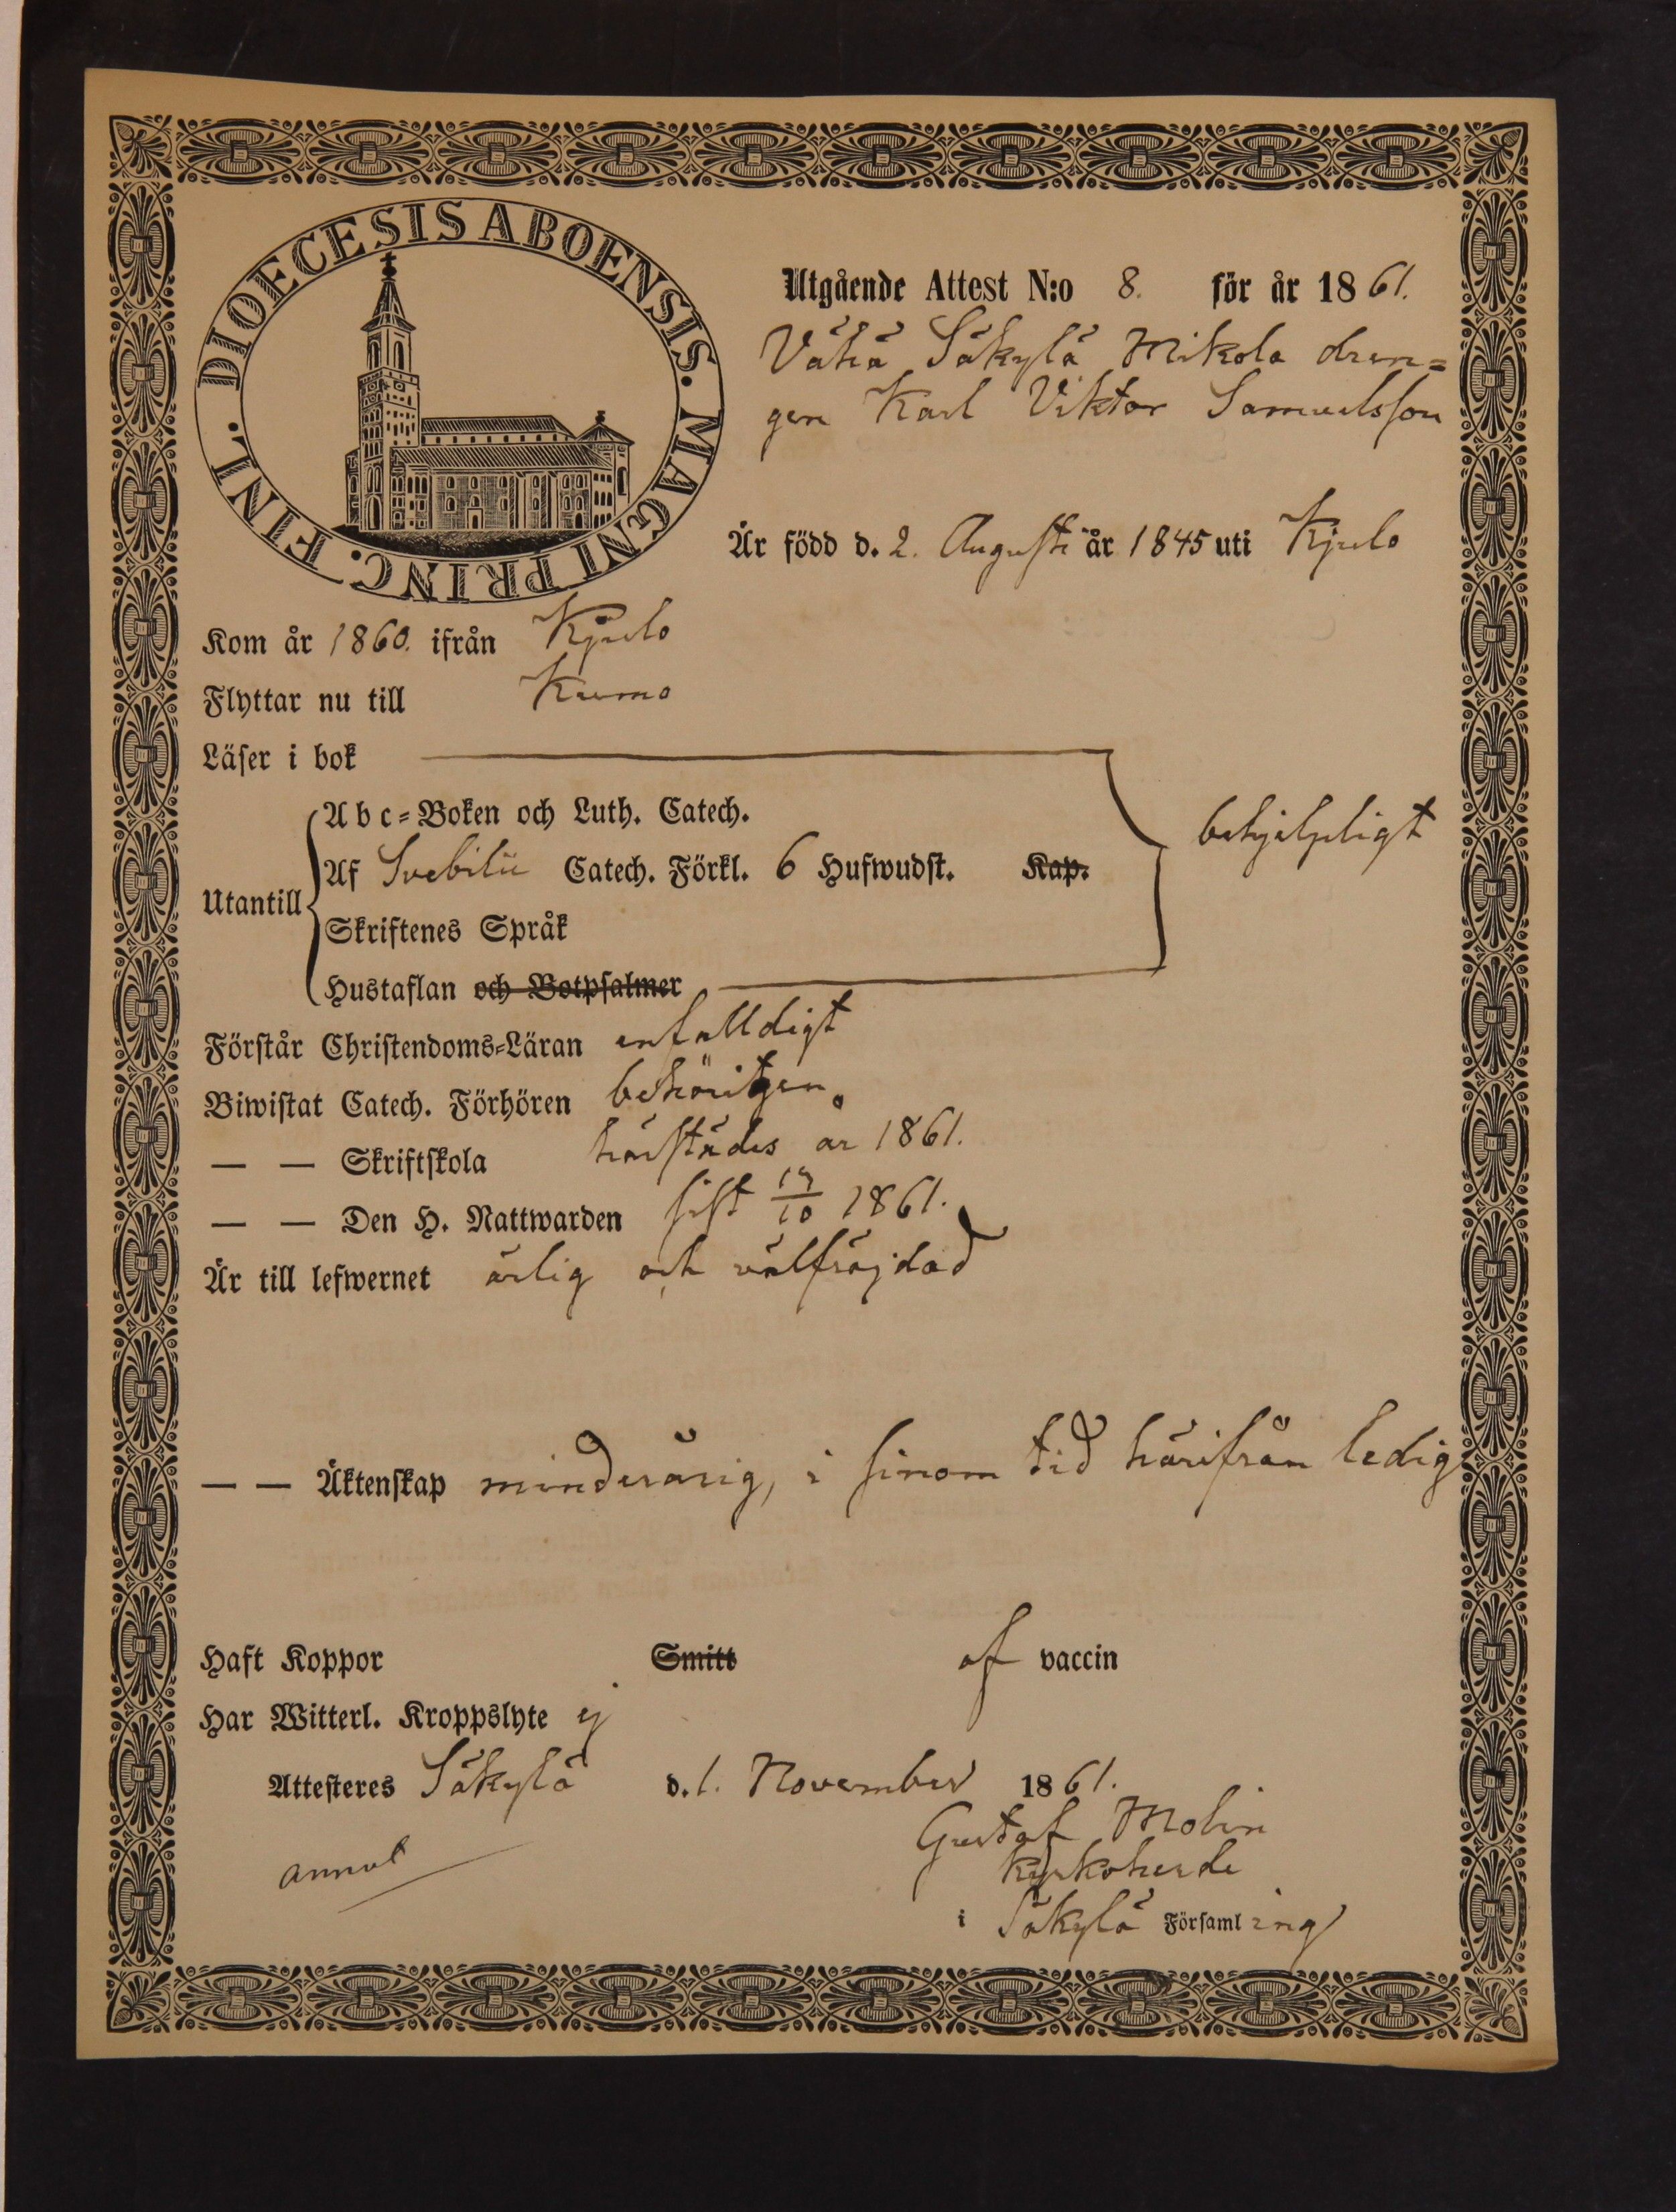 DIOECESIS ABOENSIS. MAGNI PRINC. FINL.
Utgående Attest N:o 8. för år 1861.
Vähä Säkylä Mikola dren=
gen Karl Viktor Samuelsson
Är född d. 2. Augusti år 1845 uti Kjulo
Kom år 1860. ifrån Kjulo
Flyttar nu till Kumo
Läser i bok
Abc=Boken och Luth. Catech.
behjelpligt
Utantill
Af Svebilii Catech. Förkl. 6 Hufwudst. Kap.
Skriftenes Språk
Hustaflan och Botpsalmer
Förstår Christendoms=Läran enfalldigt
Biwistat Catech. Förhören behörigen.
— — Skriftskola härstädes år 1861.
— — Den H. Nattwarden sist /10 1861.
Är till lefwernet ärlig och välfräjdad
— — Äktenskap minderårig, i sinom tid härifrån ledig
Haft Koppor Smitt af vaccin
Har Witterl. Kroppslyte ej
Attesteres Säkylä d. 1. November 1861.
Gustaf Molin
Kyrkoherde
i Säkylä Församling